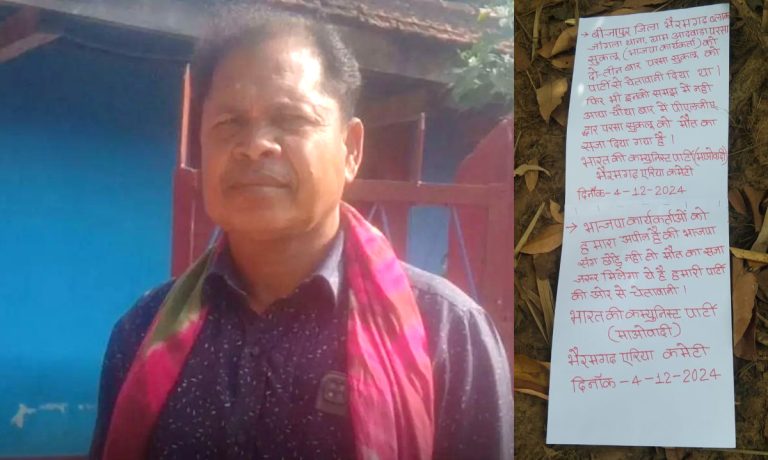 → बीजापुर जिला भैरमगढ ब्लाक
जांगला थाना, ग्राम आदवाडा परसा
सुकालू (भाजपा कार्यकर्ता) को
दो-तीन बार परसा सुकालू को
पार्टी से चेतावानी दिया था।
फिर भी इनको समझ में नही
आया चौथा बार में पीएलजीए
द्वार परसा सुकालू को मौत का
सजा दिया गया है।
भारत की कम्युनिस्ट पार्टी (माओवादी)
भैरमगढ एरिया कमेटी
दिनाँक-4-12-2024
→ भाजपा कार्यकर्ताओं को
हमारा अपील है की भाजपा
संग छोडु नही तो मौत का सजा
जरूर मिलेगा ये है हमारी पार्टी
की ओर से चेतावानी।
भारत की कम्युनिस्ट पार्टी
(माओवादी)
भैरमगढ एरिया कमेटी
दिनाँक-4-12-2024